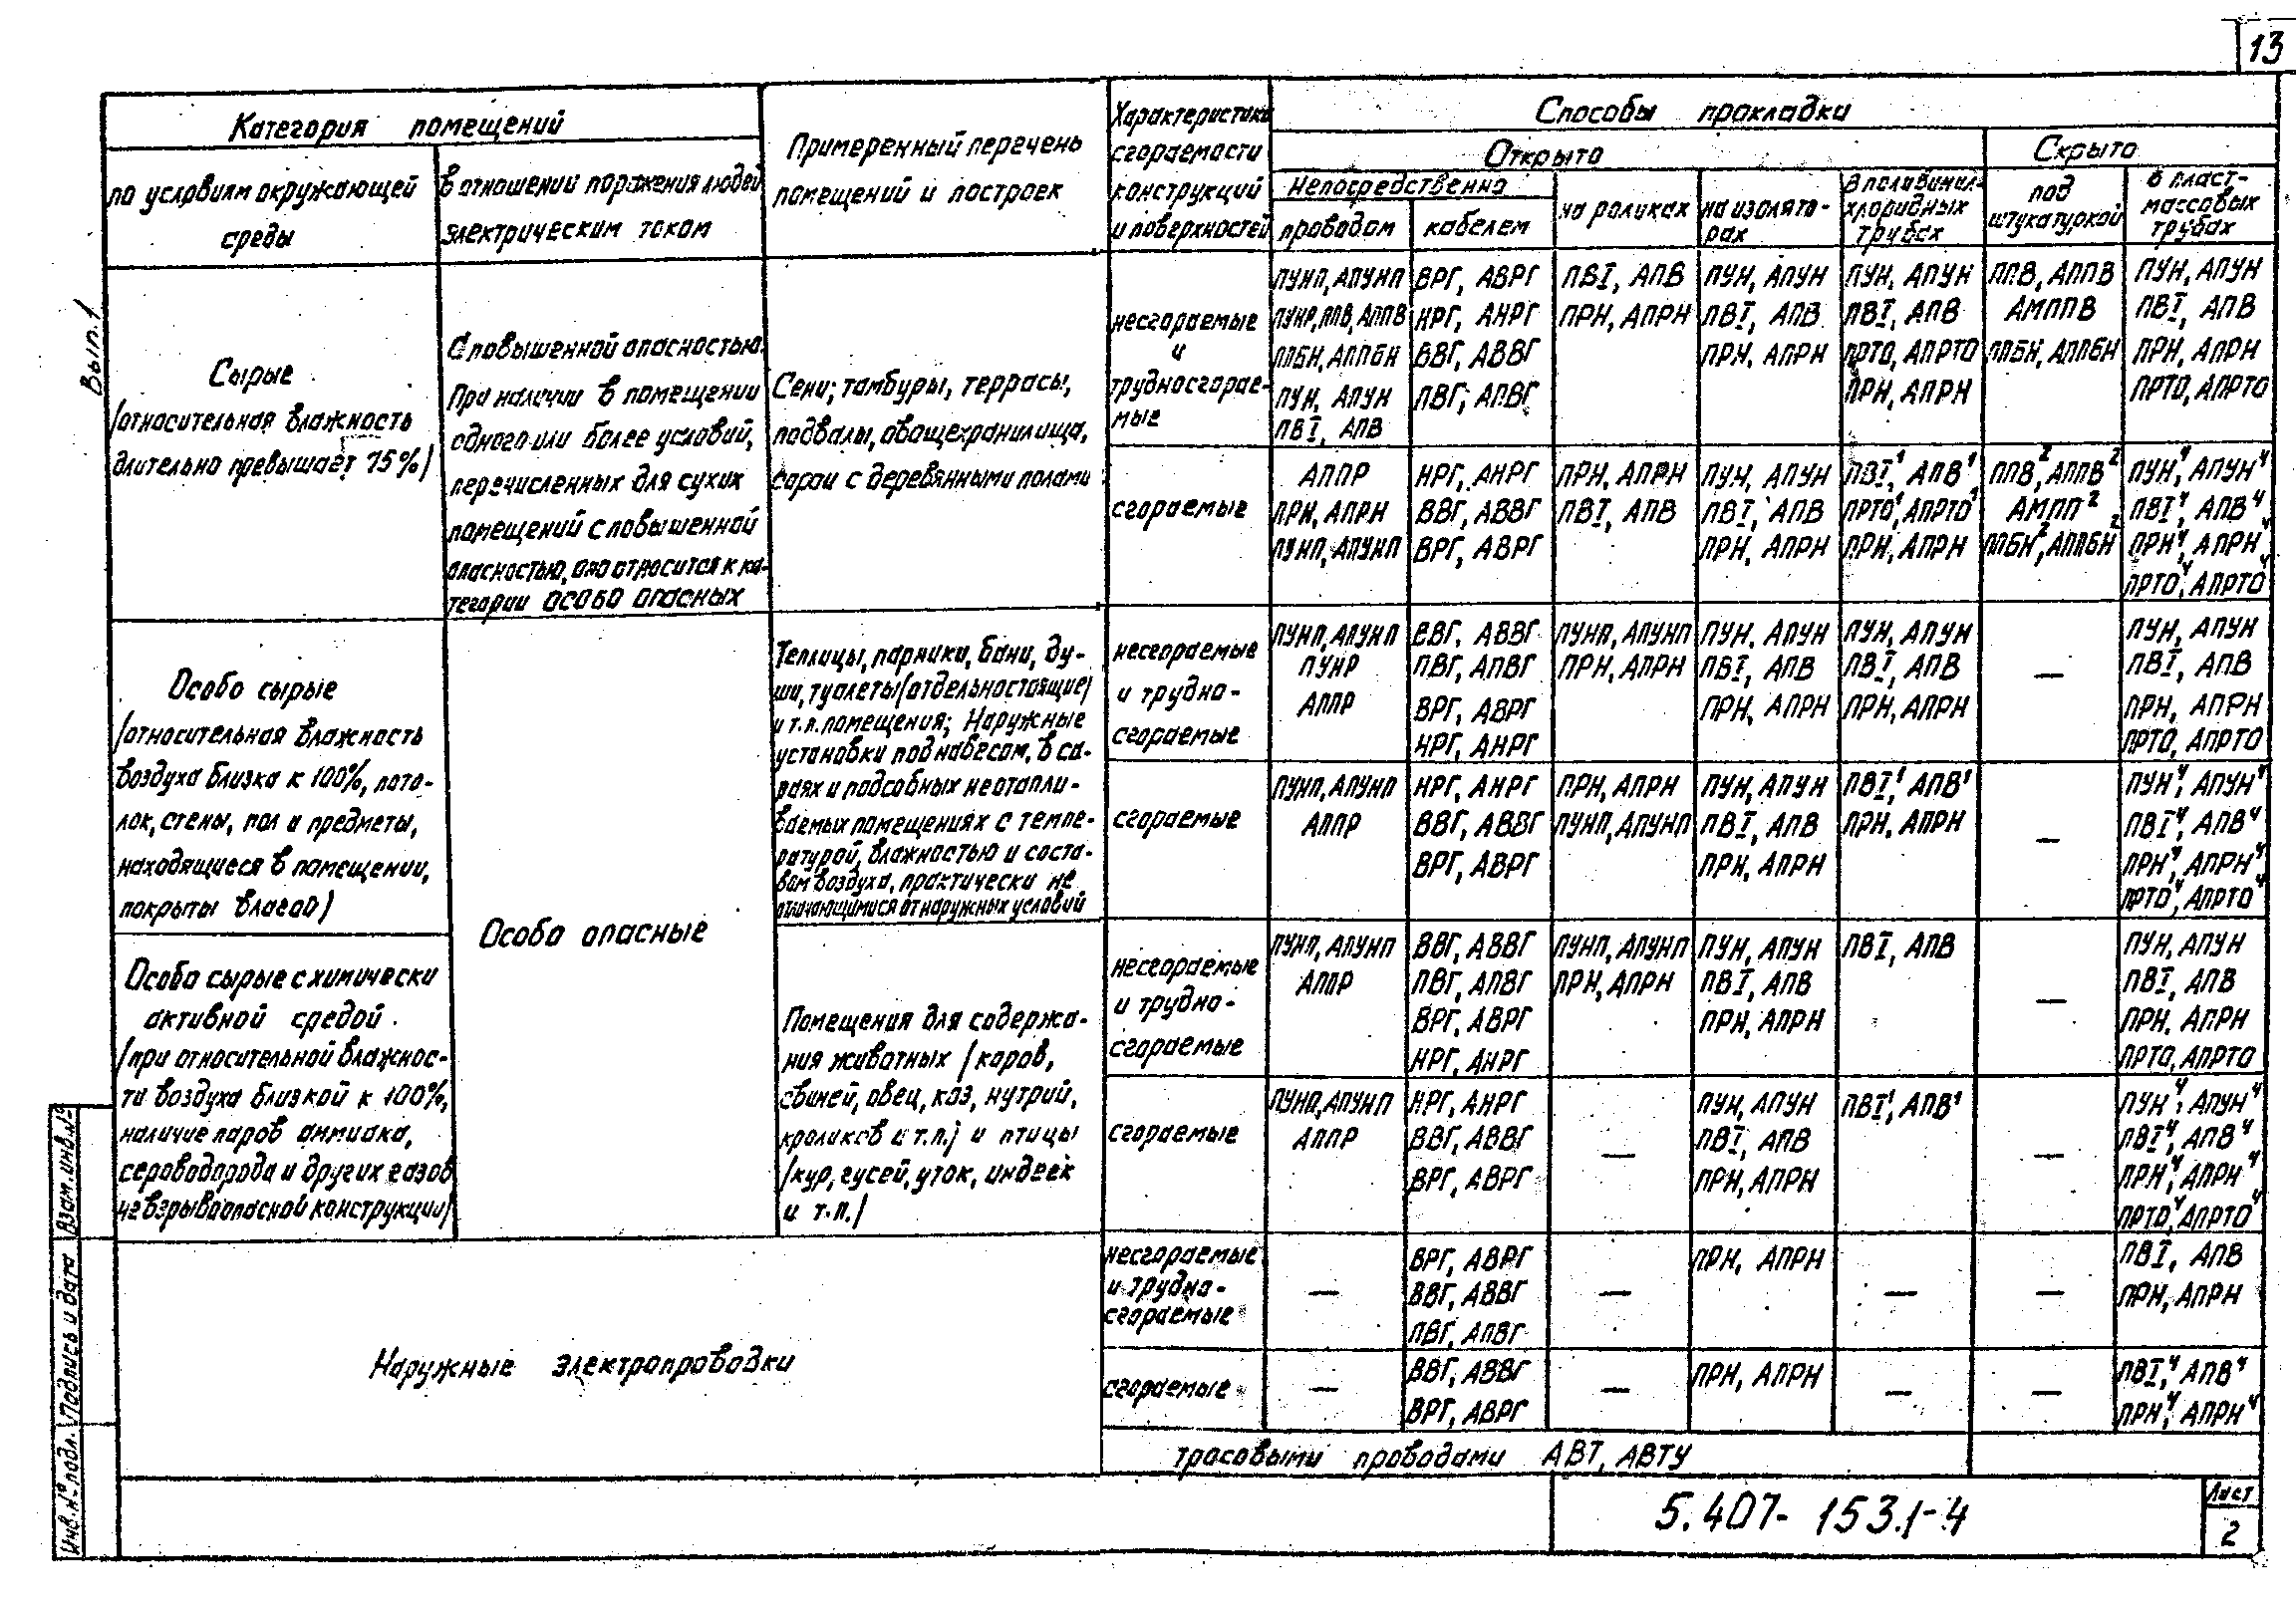 13
Категория помещений
по условиям окружающей
среды
в отношении поражения людей
электрическим током
Примеренный перечень
помещений и построек
Характеристика
сгораемости
конструкций
и поверхностей
Способы прокладки
Открыто
Скрыто
Непосредственно
проводом
кабелем
на роликах
на изолято-
рах
в поливинил-
хлоридных
трубах
под
штукатуркой
в пласт-
массовых
трубах
Вып.1
Сырые
/относительная влажность
длительно превышает 75%/
С повышенной опасностью.
При наличии в помещении
одного или более условий,
перечисленных для сухих
помещений с повышенной
опасностью, оно относится к ка-
тегории особо опасных
Сени; тамбуры, террасы,
подвалы, овощехранилища,
сараи с деревянными полами
несгораемые
и
трудносгорае-
мые
ПУНП, АПУНП
ПУНР, ППВ, АППВ
ППБН, АППБН
ПУН, АПУН
ПВI, АПВ
ВРГ, АВРГ
НРГ, АНРГ
ВВГ, АВВГ
ПВГ, АПВГ
ПВI, АПВ
ПРН, АПРН
ПУН, АПУН
ПВI, АПВ
ПРН, АПРН
ПУН, АПУН
ПВI, АПВ
ПРТО, АПРТО
ПРН, АПРН
ППВ, АППВ
АМППВ
ППБН, АППБН
ПУН, АПУН
ПВI, АПВ
ПРН, АПРН
ПРТО, АПРТО
сгораемые
АППР
ПРН, АПРН
ПУНП, АПУНП
НРГ, АНРГ
ВВГ, АВВГ
ВРГ, АВРГ
ПРН, АПРН
ПВI, АПВ
ПУН, АПУН
ПВI, АПВ
ПРН, АПРН
ПВI¹, АПВ¹
ПРТО¹, АПРТО¹
ПРН, АПРН
ППВ², АППВ²
АМПП²
ППБН², АППБН²
ПУН⁴, АПУН⁴
ПВI⁴, АПВ⁴
ПРН⁴, АПРН⁴
ПРТО⁴, АПРТО⁴
Особо сырые
/относительная влажность
воздуха близка к 100%, пото-
лок, стены, пол и предметы,
находящиеся в помещении,
покрыты влагой/
Особо опасные
Теплицы, парники, бани, ду-
ши, туалеты/отдельностоящие/
и т.п. помещения; Наружные
установки под навесом, в са-
раях и подсобных неотапли-
ваемых помещениях с темпе-
ратурой, влажностью и соста-
вом воздуха, практически не
отличающимися от наружных условий
несгораемые
и трудно-
сгораемые
ПУНП, АПУНП
ПУНР
АППР
ВВГ, АВВГ
ПВГ, АПВГ
ВРГ, АВРГ
НРГ, АНРГ
ПУНП, АПУНП
ПРН, АПРН
ПУН, АПУН
ПВI, АПВ
ПРН, АПРН
ПУН, АПУН
ПВI, АПВ
ПРН, АПРН
—
ПУН, АПУН
ПВI, АПВ
ПРН, АПРН
ПРТО, АПРТО
сгораемые
ПУНП, АПУНП
АППР
НРГ, АНРГ
ВВГ, АВВГ
ВРГ, АВРГ
ПРН, АПРН
ПУНП, АПУНП
ПУН, АПУН
ПВI, АПВ
ПРН, АПРН
ПВI¹, АПВ¹
ПРН, АПРН
—
ПУН⁴, АПУН⁴
ПВI⁴, АПВ⁴
ПРН⁴, АПРН⁴
ПРТО⁴, АПРТО⁴
Особо сырые с химически
активной средой
/при относительной влажнос-
ти воздуха близкой к 100%,
наличие паров аммиака,
сероводорода и других газов
невзрывоопасной конструкции/
Помещения для содержа-
ния животных /коров,
свиней, овец, коз, нутрий,
кроликов и т.п./ и птицы
/кур, гусей, уток, индеек
и т.п./
несгораемые
и трудно-
сгораемые
ПУНП, АПУНП
АППР
ВВГ, АВВГ
ПВГ, АПВГ
ВРГ, АВРГ
НРГ, АНРГ
ПУНП, АПУНП
ПРН, АПРН
ПУН, АПУН
ПВI, АПВ
ПРН, АПРН
ПВI, АПВ
—
ПУН, АПУН
ПВI, АПВ
ПРН, АПРН
ПРТО, АПРТО
сгораемые
ПУНП, АПУНП
АППР
НРГ, АНРГ
ВВГ, АВВГ
ВРГ, АВРГ
—
ПУН, АПУН
ПВI, АПВ
ПРН, АПРН
ПВI¹, АПВ¹
—
ПУН⁴, АПУН⁴
ПВI⁴, АПВ⁴
ПРН⁴, АПРН⁴
ПРТО⁴, АПРТО⁴
Наружные электропроводки
несгораемые
и трудно-
сгораемые
—
ВРГ, АВРГ
ВВГ, АВВГ
ПВГ, АПВГ
—
ПРН, АПРН
—
—
ПВI, АПВ
ПРН, АПРН
сгораемые
—
ВВГ, АВВГ
ВРГ, АВРГ
—
ПРН, АПРН
—
—
ПВI⁴, АПВ⁴
ПРН⁴, АПРН⁴
тросовыми проводами АВТ, АВТУ
5.407-153.1-4
Лист
2
Инв.№ подл.
Подпись и дата
Взам.инв.№